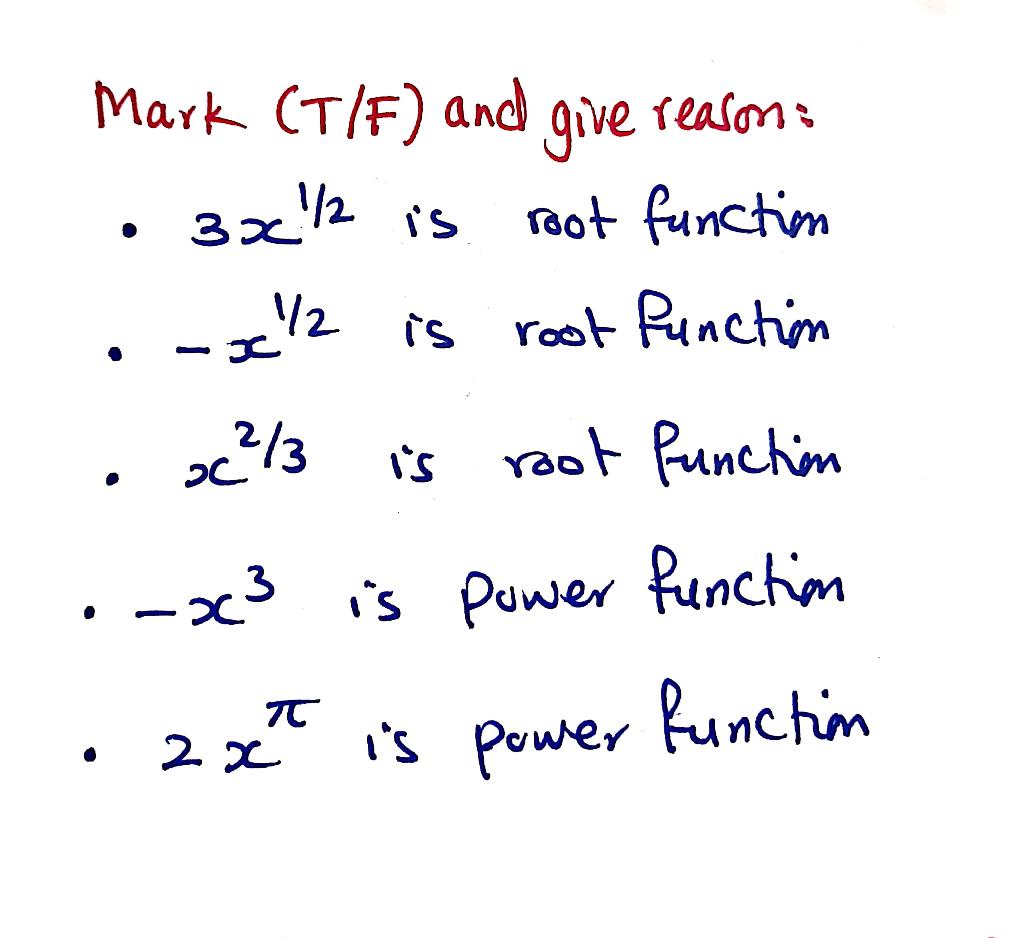 Mark (T/F) and give reason:
• 3x^1/2 is root function
• -x^1/2 is root function
• x^2/3 is root function
• -x^3 is power function
• 2x^π is power function